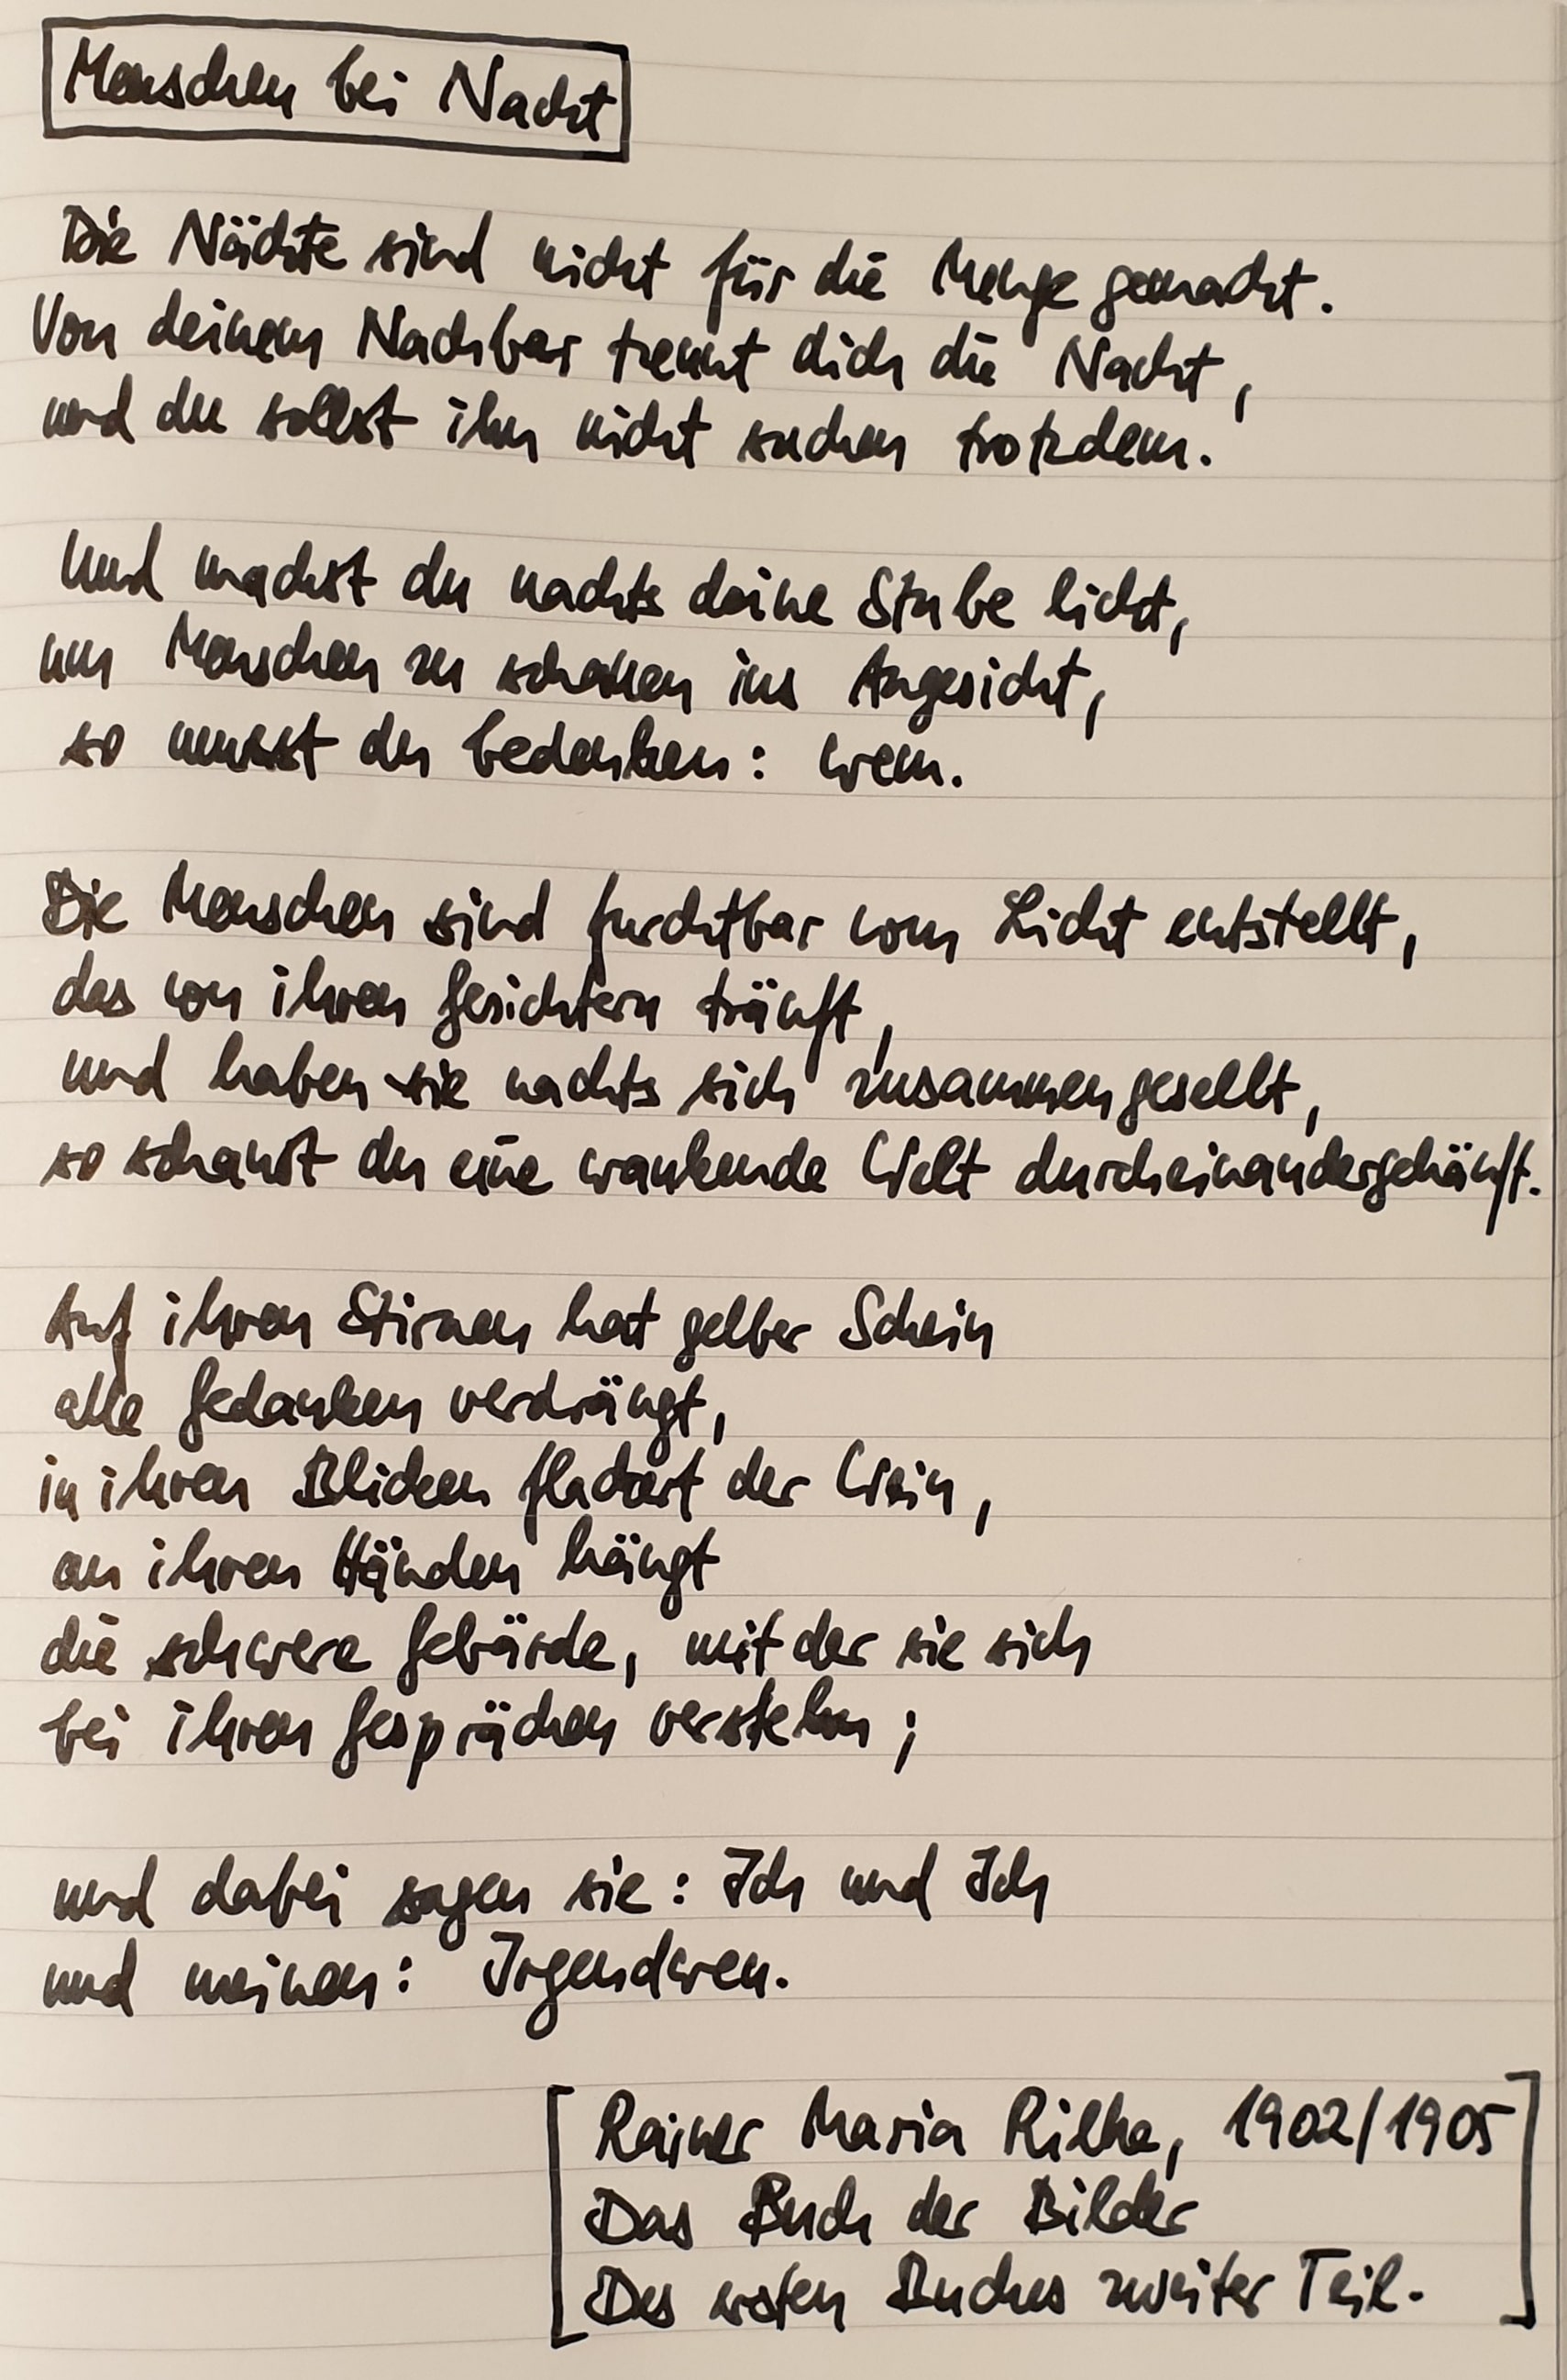 Menschen bei Nacht
Die Nächte sind nicht für die Menge gemacht.
Von deinem Nachbar trennt dich die Nacht,
und du sollst ihn nicht suchen trotzdem.
Und machst du nachts deine Stube licht,
um Menschen zu schauen ins Angesicht,
so musst du bedenken: wem.
Die Menschen sind furchtbar vom Licht entstellt,
das von ihren Gesichtern träuft,
und haben sie nachts sich zusammengesellt,
so schaust du eine wankende Welt durcheinandergehäuft.
Auf ihren Stirnen hat gelber Schein
alle Gedanken verdrängt,
in ihren Blicken flackert der Wein,
an ihren Händen hängt
die schwere Gebärde, mit der sie sich
bei ihren Gesprächen verstehn;
und dabei sagen sie: Ich und Ich
und meinen: Irgendwen.
Rainer Maria Rilke, 1902/1905
Das Buch der Bilder
Des ersten Buches zweiter Teil.